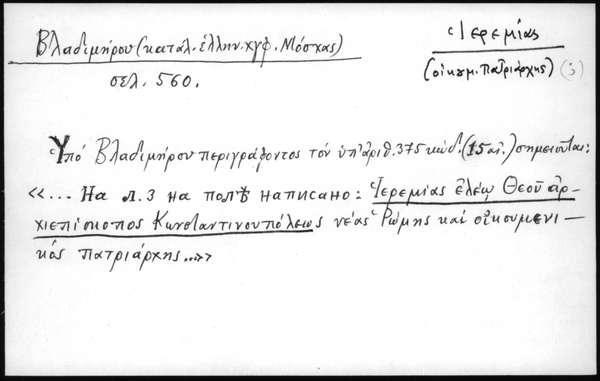 Βλαδιμήρου (κατάλ. ἑλλην. χγφ. Μόσχας)
σελ. 560.
Ἱερεμίας
(οἰκουμ. πατριάρχης) (;)
Ὑπό Βλαδιμήρου περιγράφοντος τόν ὑπ' ἀριθ. 375 κώδ. (15 αἰ.) σημειοῦται:
«... На л. 3 на полѣ написано: Ἱερεμίας ἐλέῳ Θεοῦ ἀρ-
χιεπίσκοπος Κωνσταντινουπόλεως νέας Ῥώμης καί οἰκουμενι-
κός πατριάρχης...»